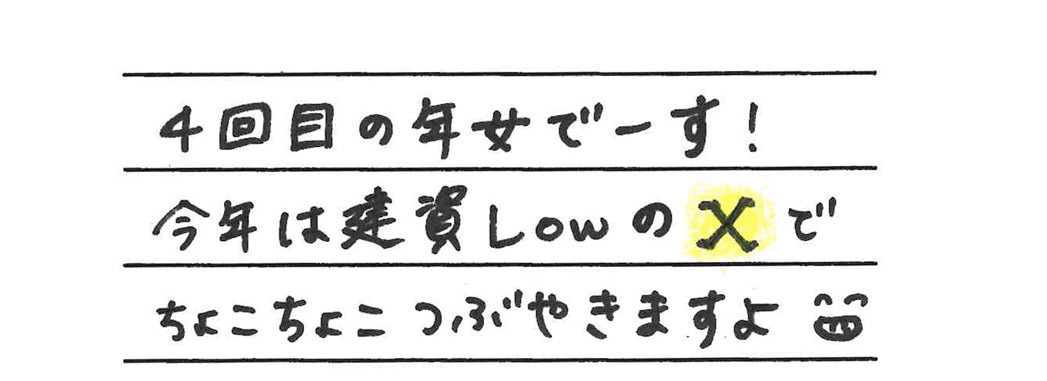 4回目の年女でーす!
今年は建資LowのXで
ちょこちょこつぶやきますよ